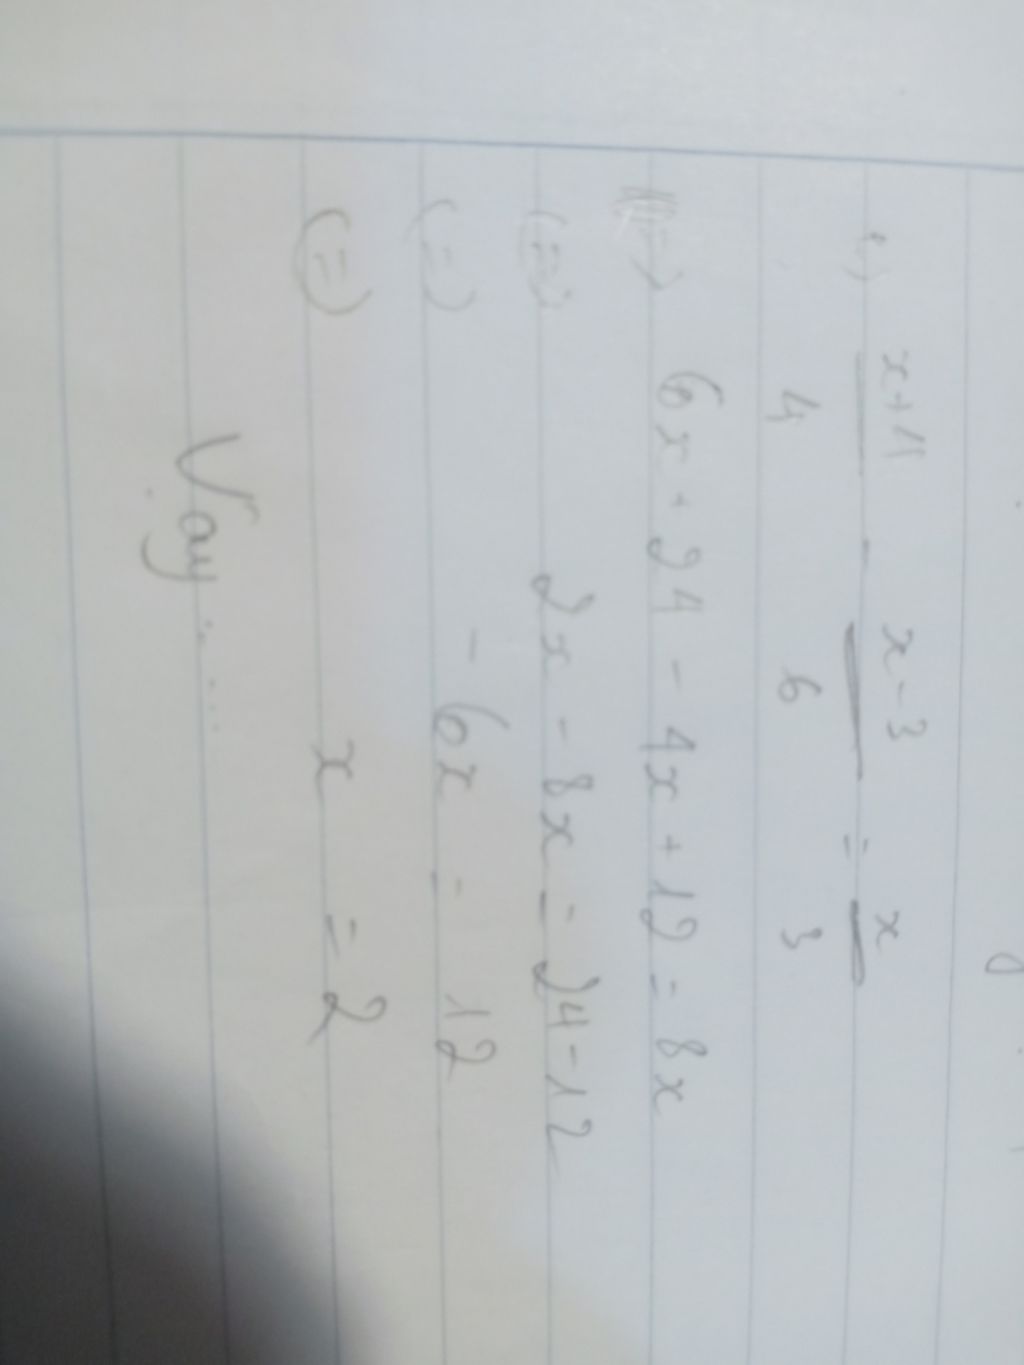 x+4 - x-3 = x
4 6 3
6x + 24 - 4x + 12 = 8x
(=) 2x - 8x = 24 - 12
(=) - 6x = 12
(=) x = 2
Vay:....